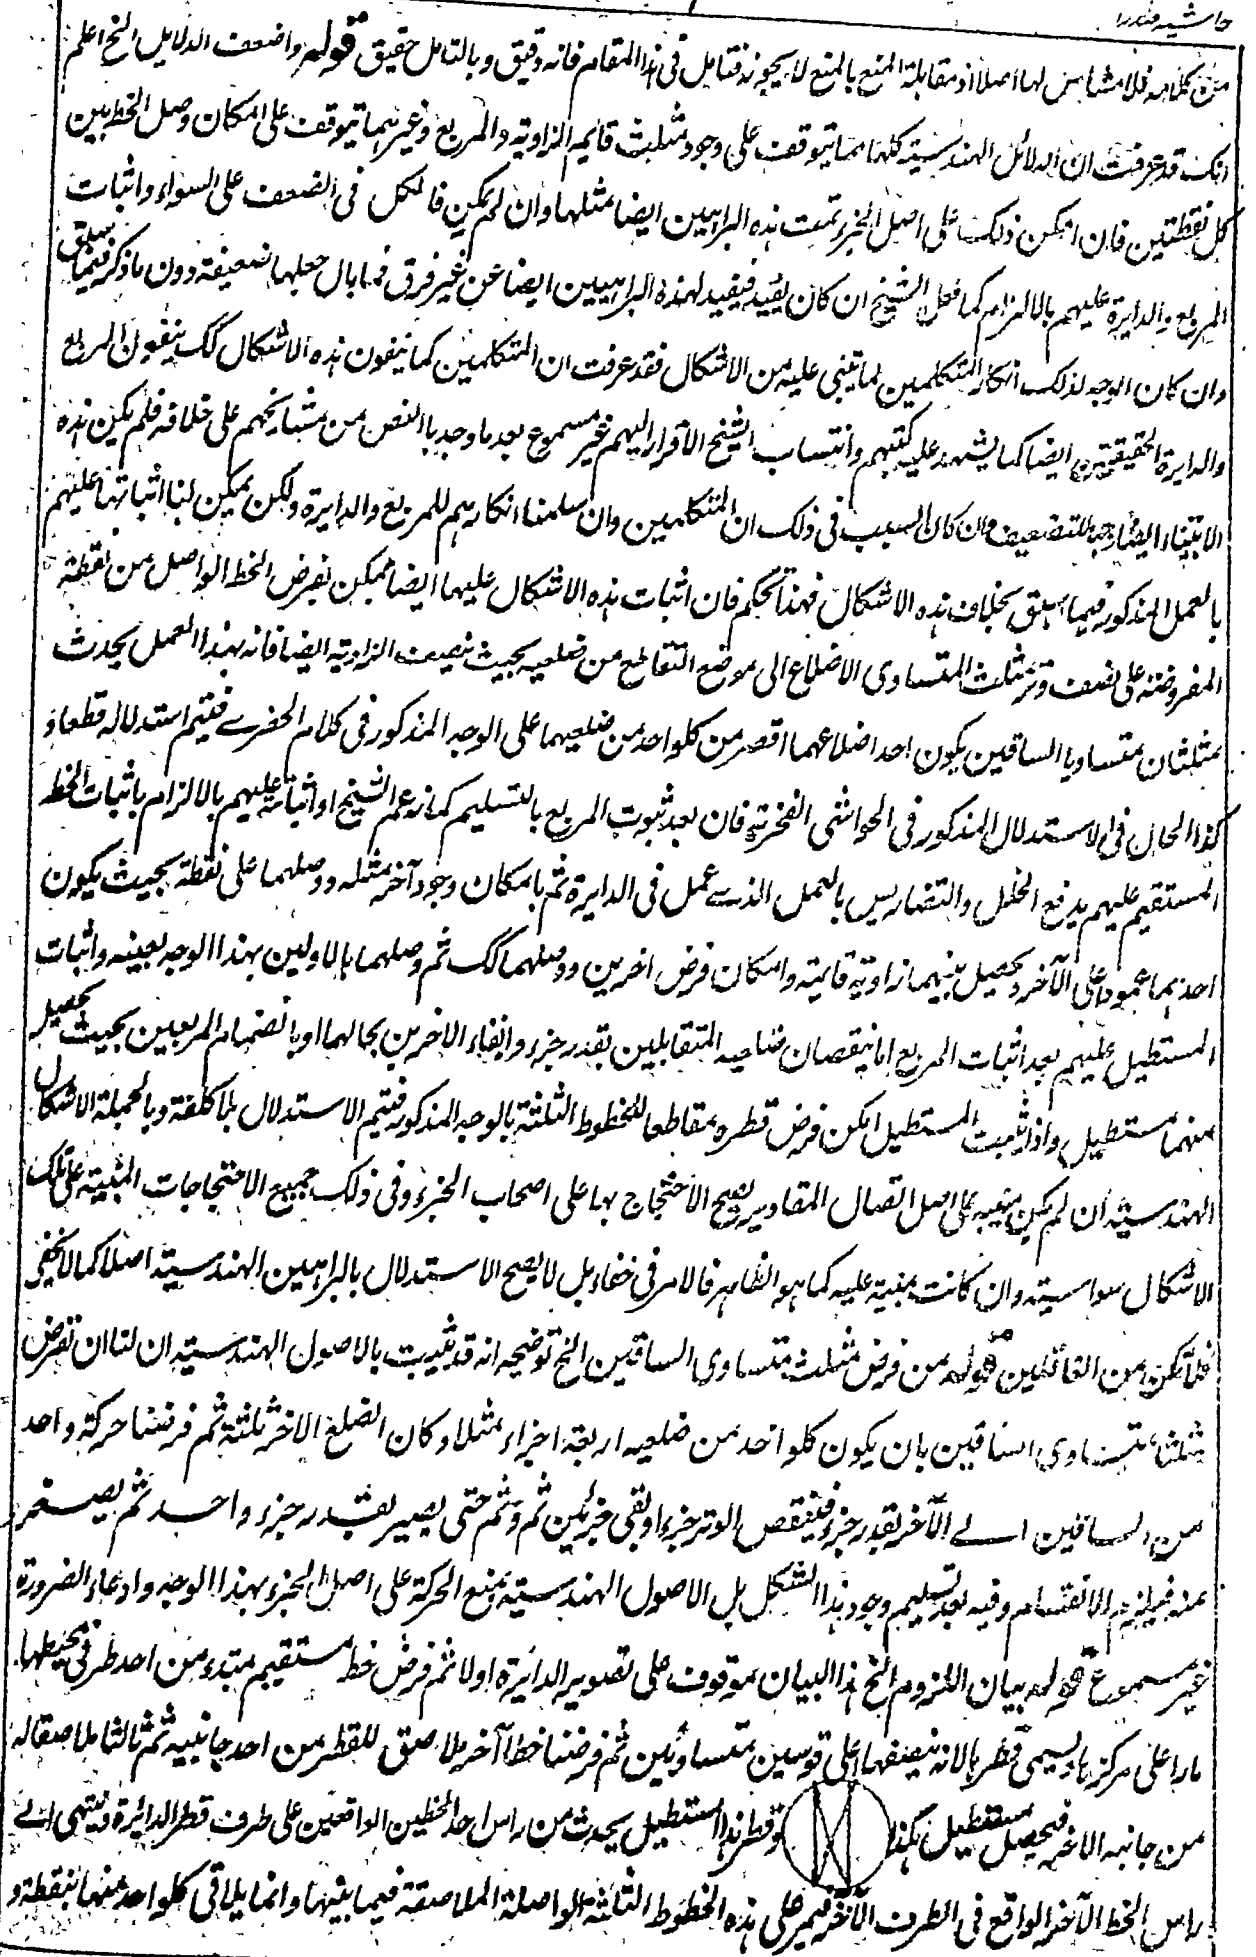 حاشیہ صدرا
من کلامہ فلا مساس لہا اصلا اذ مقابلۃ المنع بالمنع لا یجوز فتامل فی ہذا المقام فانہ دقیق و بالتامل حقیق قولہ واضعف الدلایل الخ اعلم
انک قد عرفت ان الدلائل الہندسیۃ کلہا مما یتوقف علی وجود مثلث قایم الزاویۃ والمربع وغیرہما یتوقف علی امکان وصل الخط بین
کل نقطتین فان امکن ذلک علی اصل الجزء تمت ہذہ البراہین ایضا بمثلہا وان لم یکن فالکل فی الضعف علی السواء واثبات
المربع والدایرۃ علیہم بالالزام کما فعل الشیخ ان کان یفید فیفید لہذہ البراہین ایضا من غیر فرق فما بال جعلہا ضعیفۃ دون ما ذکر فیما سبق
وان کان الوجہ لذلک انکار المتکلمین لما یبتنی علیہ من الاشکال فقد عرفت ان المتکلمین کما ینفون ہذہ الاشکال کک ینفون المربع
والدایرۃ الحقیقیتین ایضا کما یشہد علیہ کتبہم وانتساب الشیخ الاقرار الیہم غیر مسموع بعد ما وجد بالنص من مشایخہم علی خلافہ فلم یکن ہذہ
الابتناء ایضا وجہا للتضعیف وان کان السبب فی ذلک ان المتکلمین وان سلمنا انکارہم للمربع والدایرۃ ولکن یمکن لنا اثباتہا علیہم
بالعمل المذکور فیما سبق بخلاف ہذہ الاشکال فہذا تحکم فان اثبات ہذہ الاشکال علیہا ایضا ممکن بفرض الخط الواصل من نقطۃ
المفروضۃ علی نصف وتر مثلث المتساوی الاضلاع الی موضع التقاطع من ضلعیہ بحیث ینصف الزاویۃ ایضا فانہ بہذا العمل یحدث
مثلثان متساویا الساقین یکون احد اضلاعہما اقصر من کل واحد من ضلعیہما علی الوجہ المذکور فی کلام الحضری فیتم استدلالہ قطعا و
کذا الحال فی الاستدلال المذکور فی الحواشی الفخریۃ فان بعد ثبوت المربع بالتسلیم کما زعم الشیخ او اثباتہ علیہم بالالزام باثبات الخط
المستقیم علیہم بدفع الخلل والتضاریس بالعمل الذی عمل فی الدایرۃ ثم بامکان وجود آخر مثلہ ووصلہما علی نقطۃ بحیث یکون
احدہما عمودا علی الآخر ویحصل بینہما زاویۃ قایمۃ وامکان فرض اخرین ووصلہما کک ثم وصلہما بالاولین بہذا الوجہ بعینہ واثبات
المستطیل علیہم بعد اثبات المربع اما بنقصان ضلعیہ المتقابلین بقدر جزء وابقاء الاخرین بحالہما او بانضمام المربعین بحیث یحصل
منہما مستطیل واذا ثبت المستطیل امکن فرض قطرہ مقاطعا للخطوط الثلثۃ بالوجہ المذکور فیتم الاستدلال بلا کلفۃ وبالجملۃ الاشکال
الہندسیۃ ان لم یکن مبنیۃ علی اصل اتصال المقادیر یصح الاحتجاج بہا علی اصحاب الجزء وفی ذلک جمیع الاحتجاجات المبنیۃ علی تلک
الاشکال سواسیۃ وان کانت مبنیۃ علیہ کما ہو الظاہر فالامر فی خفاء بل لا یصح الاستدلال بالبراہین الہندسیۃ اصلا کما لا یخفی
فلا تکن من الغافلین قولہ من فرض مثلث متساوی الساقین الخ توضیحہ انہ قد ثبت بالاصول الہندسیۃ ان لنا ان نفرض
مثلثا متساوی الساقین بان یکون کل واحد من ضلعیہ اربعۃ اجزاء مثلا وکان الضلع الآخر ثلثۃ ثم فرضنا حرکۃ واحد
من الساقین الی الآخر بقدر جزء فینقص الوتر جزءا ویبقی جزئین ثم وثم حتی یصیر بقدر جزء واحد ثم یصیر اصغر
منہ فیلزم الانقسام وفیہ بعد تسلیم وجود ہذا الشکل بل الاصول الہندسیۃ یمنع الحرکۃ علی اصل الجزء بہذا الوجہ وادعاء الضرورۃ
غیر مسموع قولہ بیان اللزوم الخ ہذا البیان موقوف علی تصویر الدایرۃ اولا ثم فرض خط مستقیم مبتدء من احد طرفی محیطہا
مارا علی مرکزہا ویسمی قطرہا لانہ ینصفہا علی قوسین متساویین ثم فرضنا خطا آخر ملاصق للقطر من احد جانبیہ ثم ثالثا ملاصقا لہ
من جانبہ الاخر فیحصل مستطیل ہکذا وقطر ہذا المستطیل یحدث من راس احد الخطین الواقعین علی طرف قطر الدائرۃ وینتہی الی
راس الخط الآخر الواقع فی الطرف الآخر فیمر علی ہذہ الخطوط الثلثۃ الواصلۃ الملاصقۃ فیما بینہا وانما یلاقی کل واحد منہا بنقطۃ و